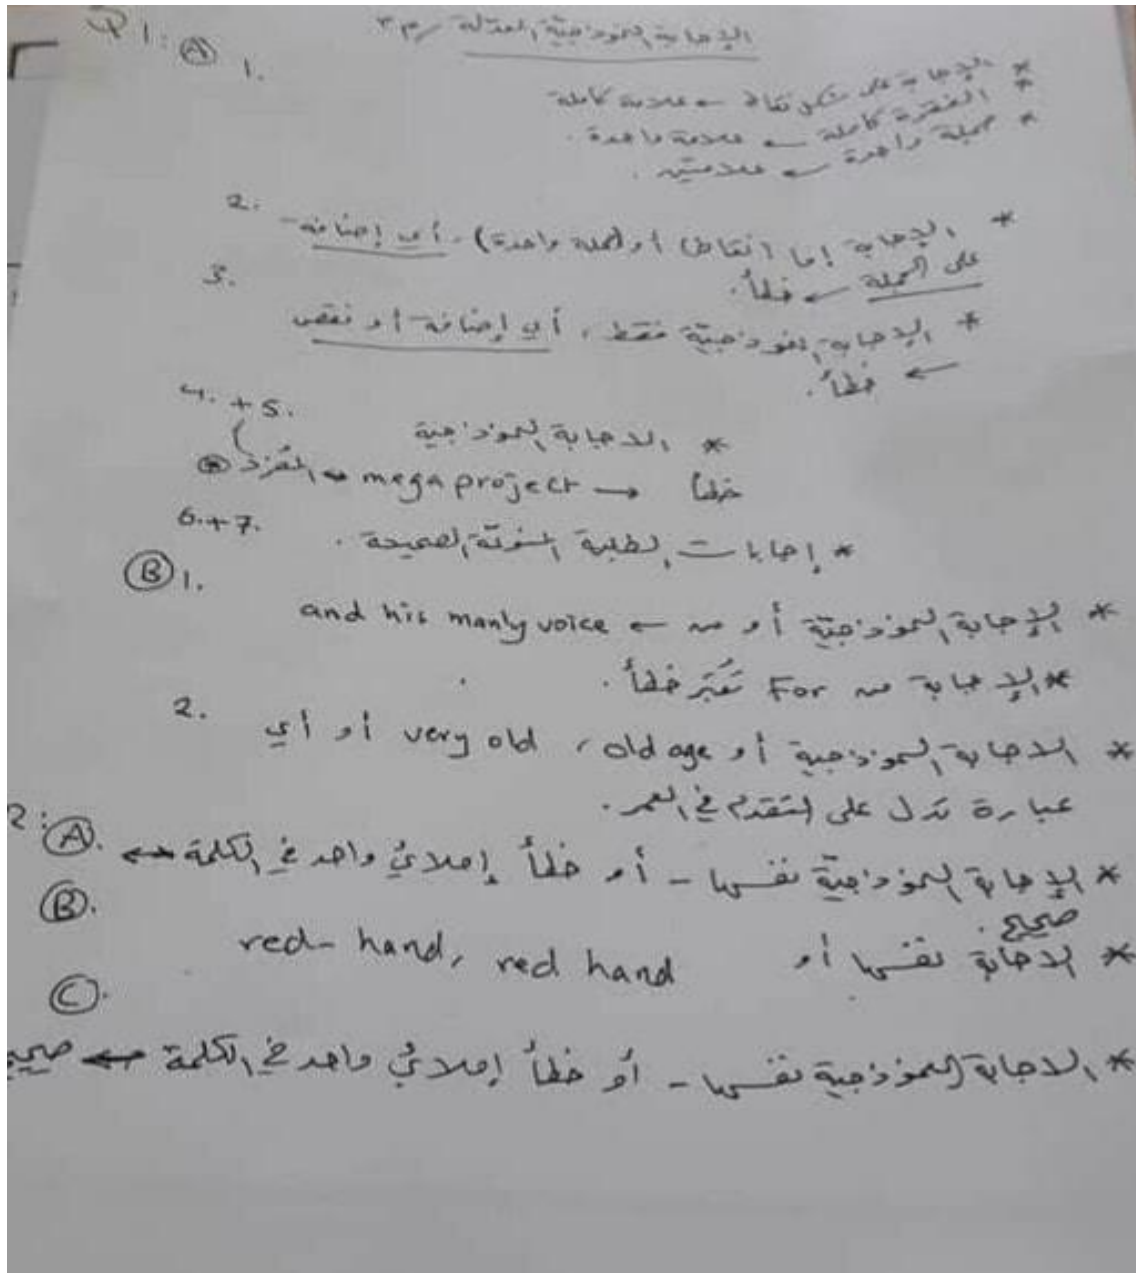 الإجابة النموذجية المعدلة / م٣
Q1: A 1.
* الإجابة على شكل نقاط ← علامة كاملة
* الفقرة كاملة ← علامة واحدة.
* جملة واحدة ← علامتين.
2. * الإجابة إما (نقاط) أو (جملة واحدة)، أي إضافة
على الجملة ← خطأ.
3. * الإجابة النموذجية فقط، أي إضافة أو نقص
← خطأ.
4. + 5. * الاجابة النموذجية
المفرد ← mega project → خطأ
6. + 7. * إجابات الطلبة المنوعة الصحيحة.
B 1. * الإجابة النموذجية أو من ← and his manly voice
* الإجابة من For تعتبر خطأ.
2. * الاجابة النموذجية أو old age، very old أو أي
عبارة تدل على التقدم في العمر.
2: A. * الإجابة النموذجية نفسها - أو خطأ إملائي واحد في الكلمة ↔
صحيح.
B. * الاجابة نفسها أو red-hand, red hand
C. * الاجابة النموذجية نفسها - أو خطأ إملائي واحد في الكلمة ↔